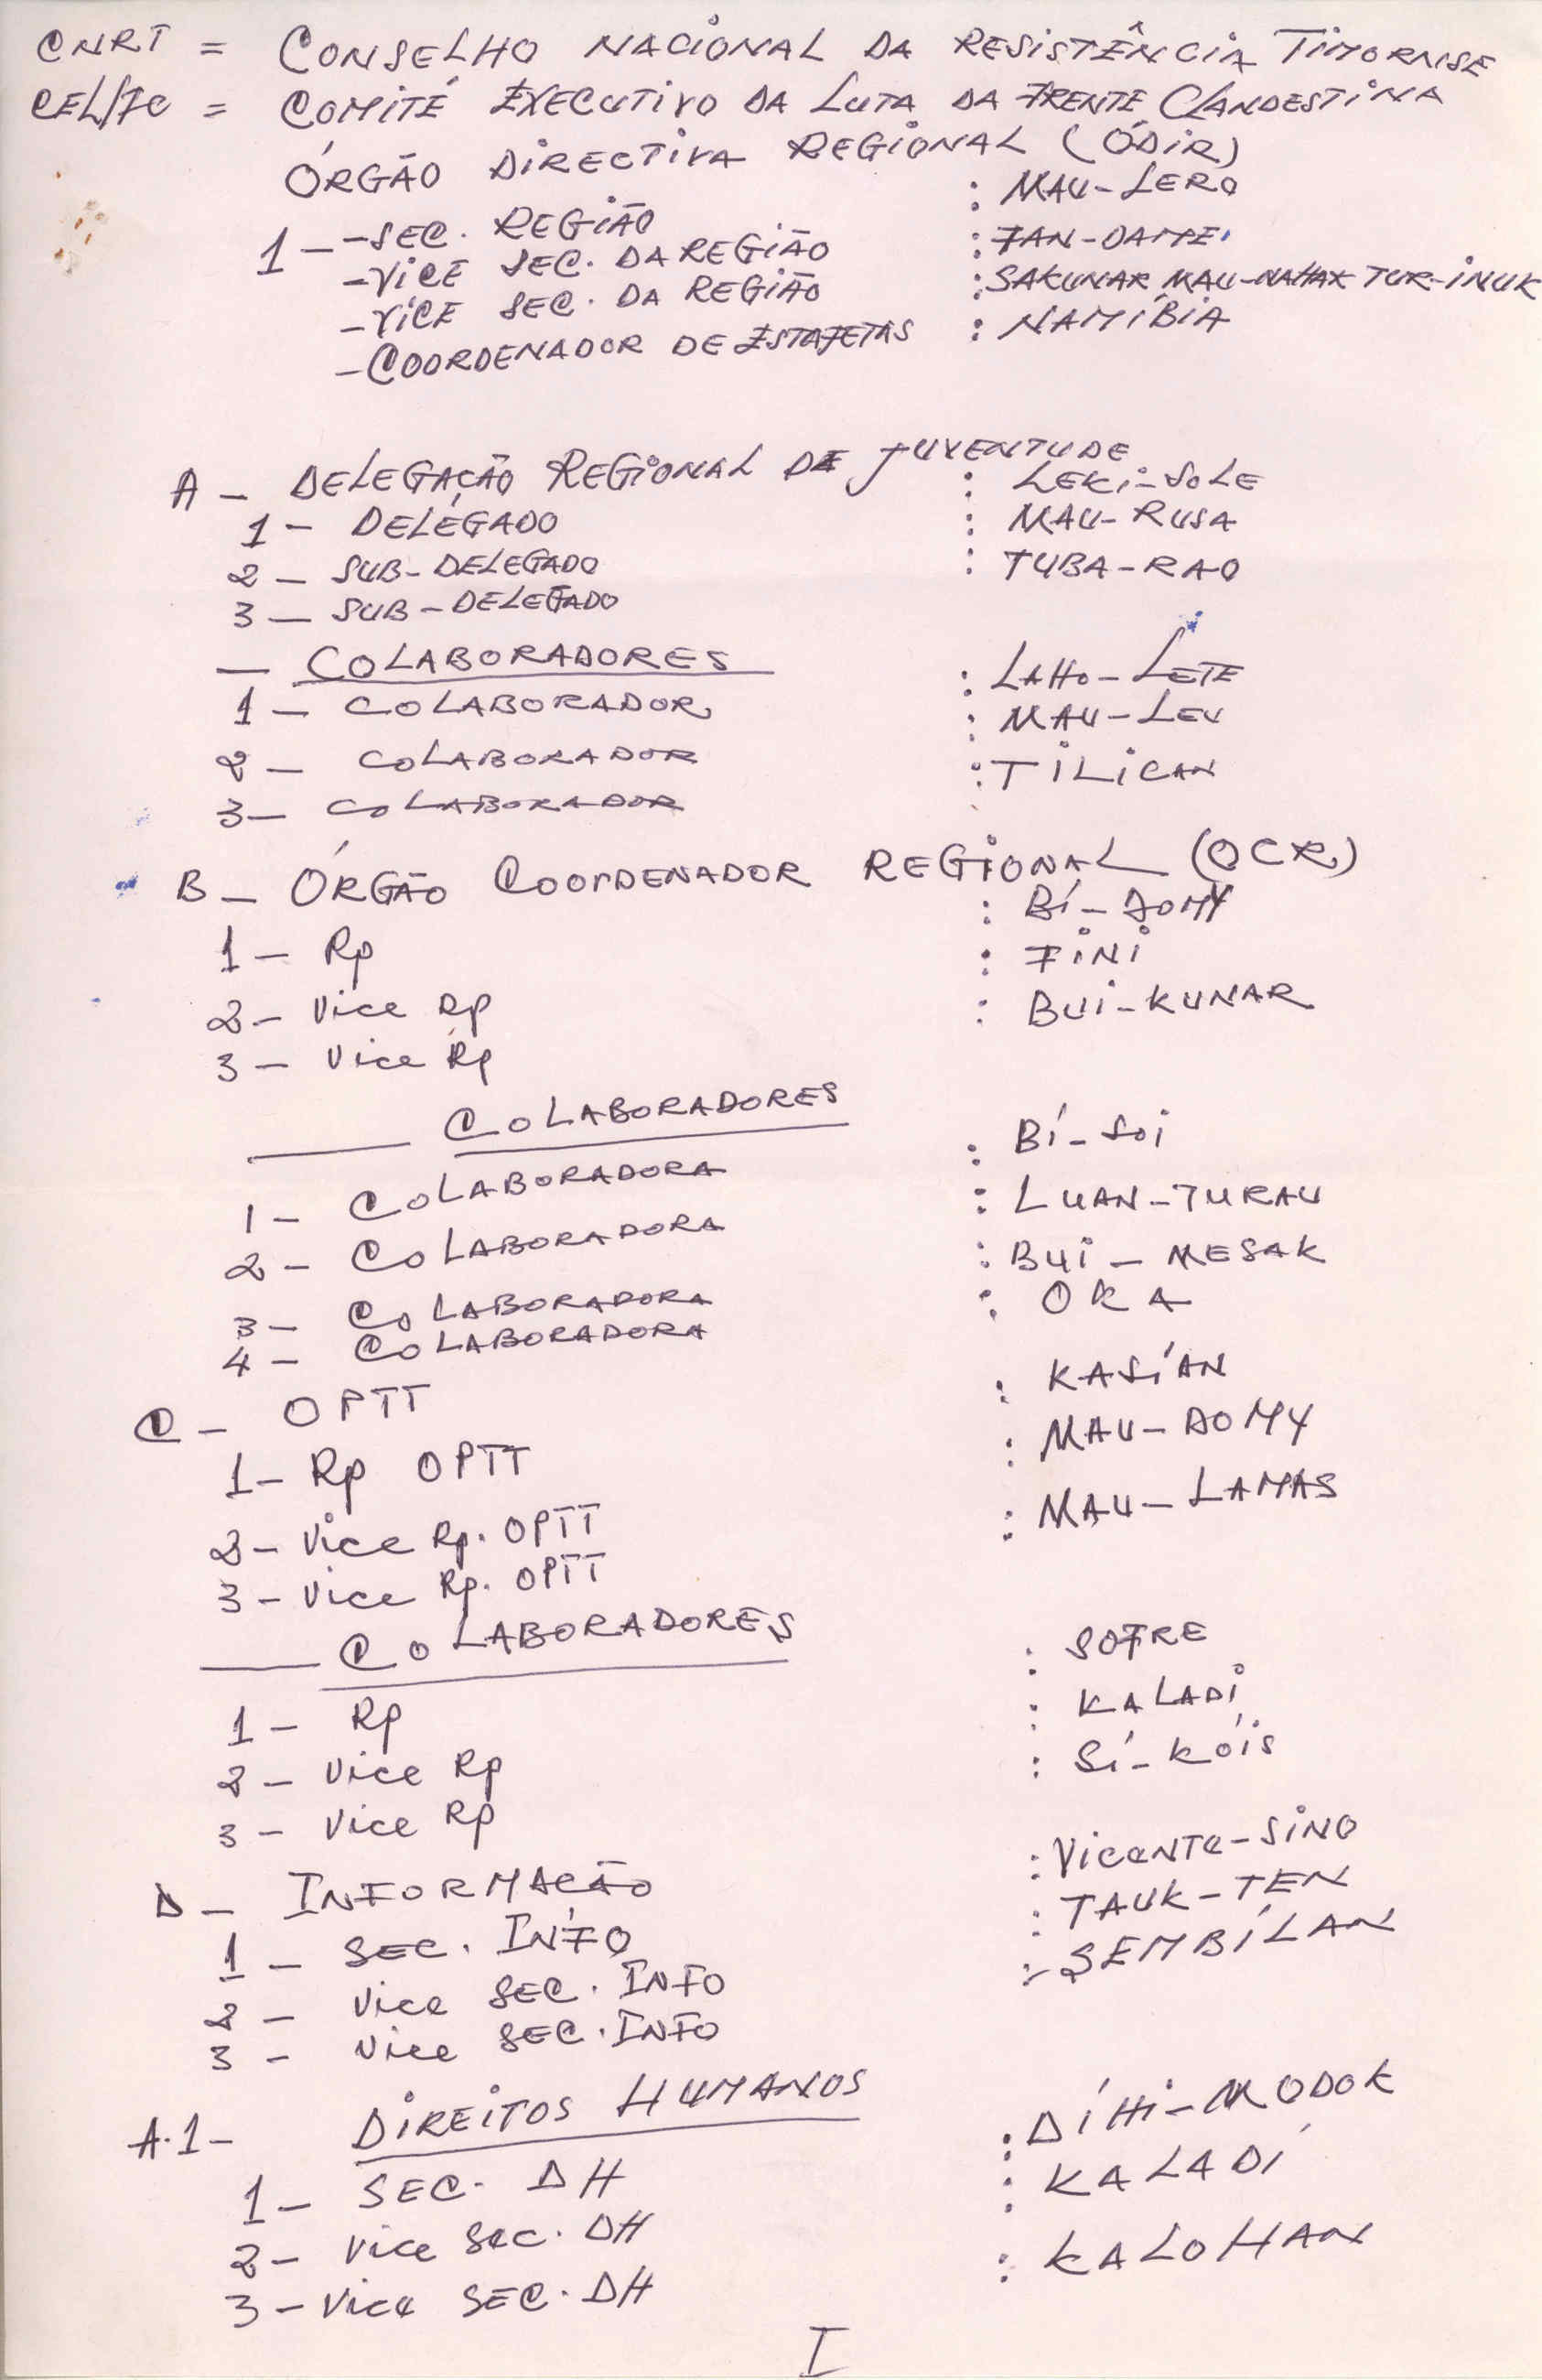 CNRT = CONSELHO NACIONAL DA RESISTÊNCIA TIMORNISE
CEL/FC = COMITÉ EXECUTIVO DA LUTA DA FRENTE CLANDESTINA
ÓRGÃO DIRECTIVA REGIONAL (ÓDIR)
1 - - SEC. REGIÃO : MAU-LERO
- VICE SEC. DA REGIÃO : FAN-DAMPE
- VICE SEC. DA REGIÃO : SAKUNAR MAU-NAHAK TUR-INUK
- COORDENADOR DE ESTAFETAS : NAMÍBIA
A - DELEGAÇÃO REGIONAL DE JUVENTUDE
1 - DELEGADO : LEKI-SOLE
2 - SUB-DELEGADO : MAU-RUSA
3 - SUB-DELEGADO : TUBA-RAO
- COLABORADORES
1 - COLABORADOR : LAHO-LETE
2 - COLABORADOR : MAU-LEU
3 - COLABORADOR : TILICAN
B - ÓRGÃO COORDENADOR REGIONAL (OCR)
1 - Rp : BÍ-DOMY
2 - Vice Rp : FINI
3 - Vice Rp : BUI-KUNAR
- COLABORADORES
1 - COLABORADORA : BÍ-SOI
2 - COLABORADORA : LUAN-TURAU
3 - COLABORADORA : BUI-MESAK
4 - COLABORADORA : OKA
C - OPTT
1 - Rp OPTT : KASÍAN
2 - Vice Rp. OPTT : MAU-DOMY
3 - Vice Rp. OPTT : MAU-LAMAS
- COLABORADORES
1 - Rp : SOFRE
2 - Vice Rp : KALADI
3 - Vice Rp : SÍ-KÓIS
D - INFORMAÇÃO
1 - SEC. INFO : VICENTE-SINO
2 - Vice SEC. INFO : TAUK-TEN
3 - Vice SEC. INFO : SEMBÍLAN
A.1 - DIREITOS HUMANOS
1 - SEC. DH : DÍHI-MODOK
2 - Vice Sec. DH : KALADÍ
3 - Vice SEC. DH : KALOHAN
I